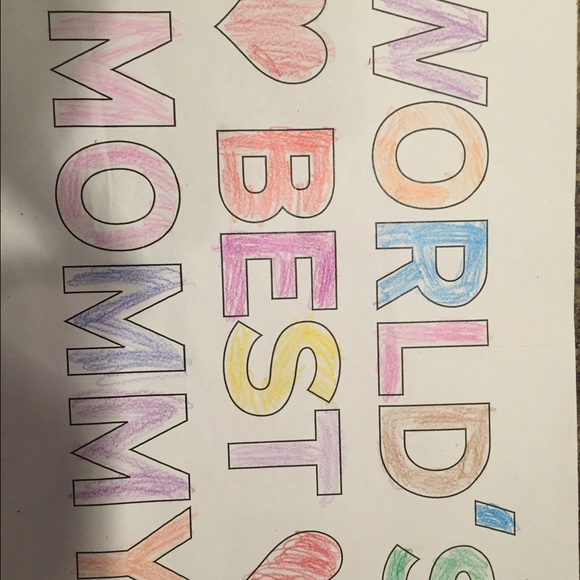 WORLD'S
BEST
MOMMY